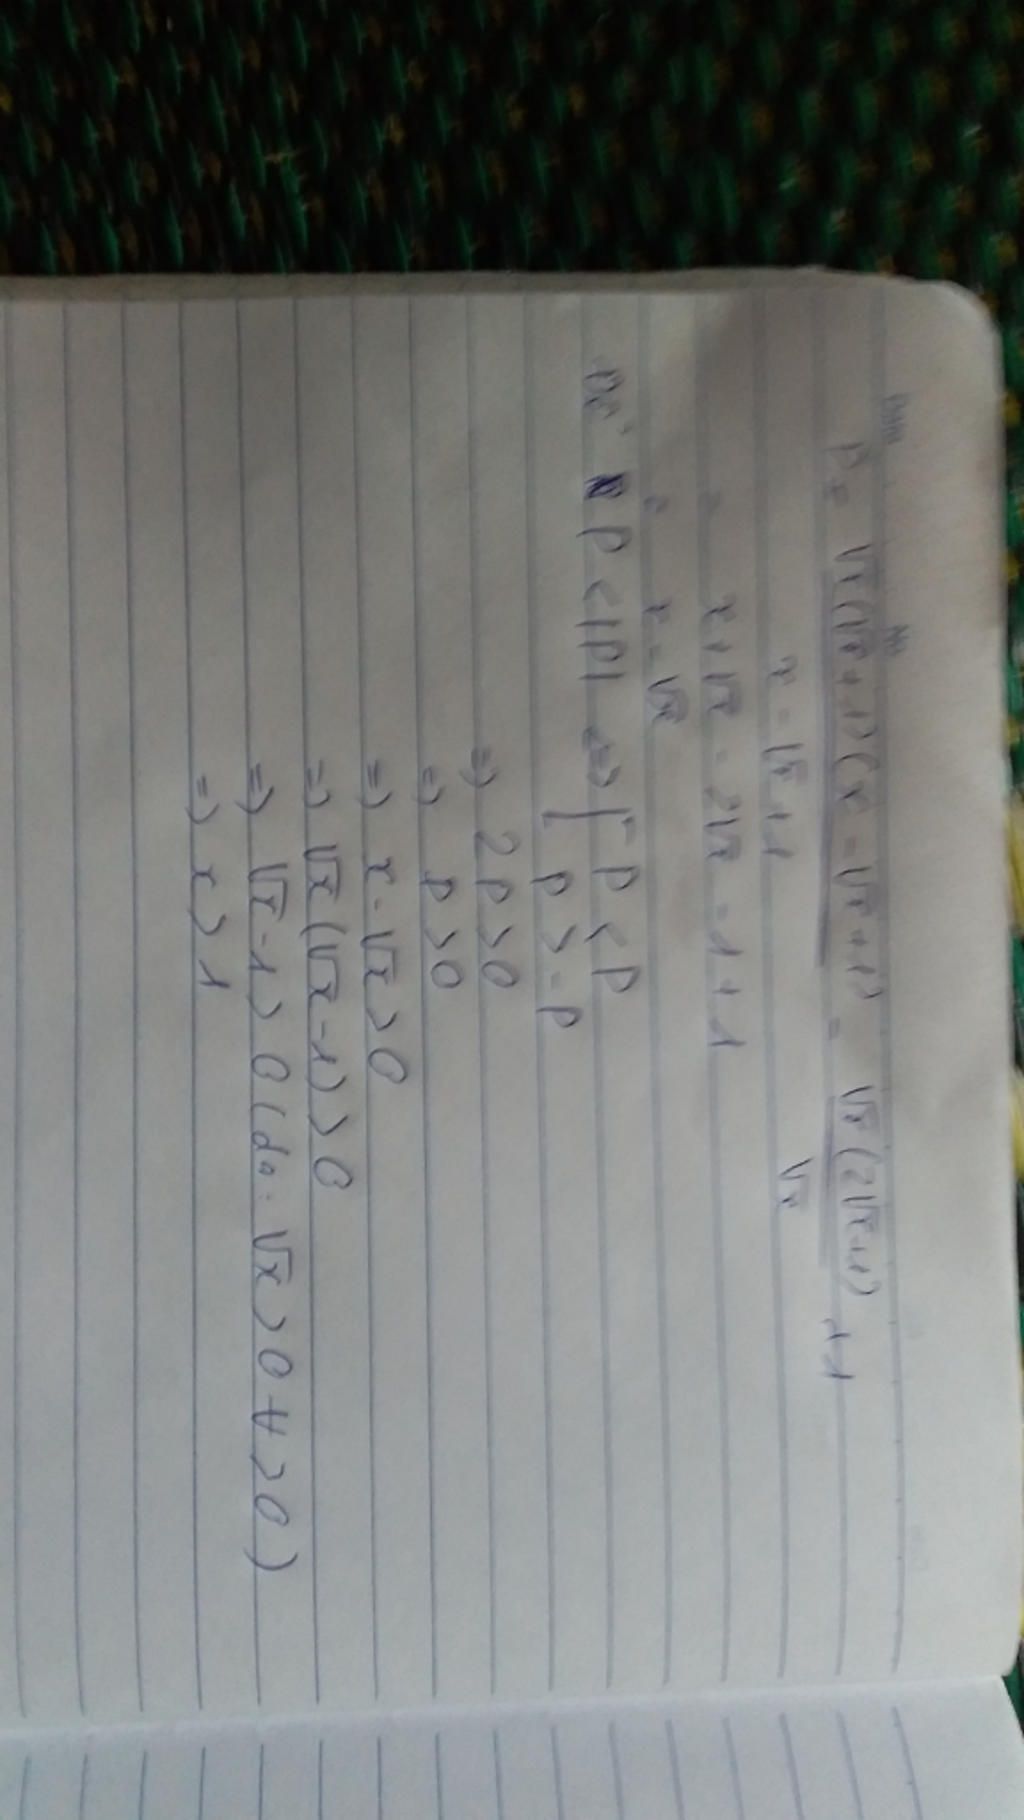 P = √x(√x+1)(x-√x+1) = √x(2√x+1) +1
x-√x+1 √x
= x+√x - 2√x - 1 + 1
= x - √x
P < |P| <=> [ P < P
P > - P
=> 2P > 0
=> P > 0
=> x - √x > 0
=> √x (√x - 1) > 0
=> √x - 1 > 0 (do: √x > 0 ∀ > 0)
=> x > 1